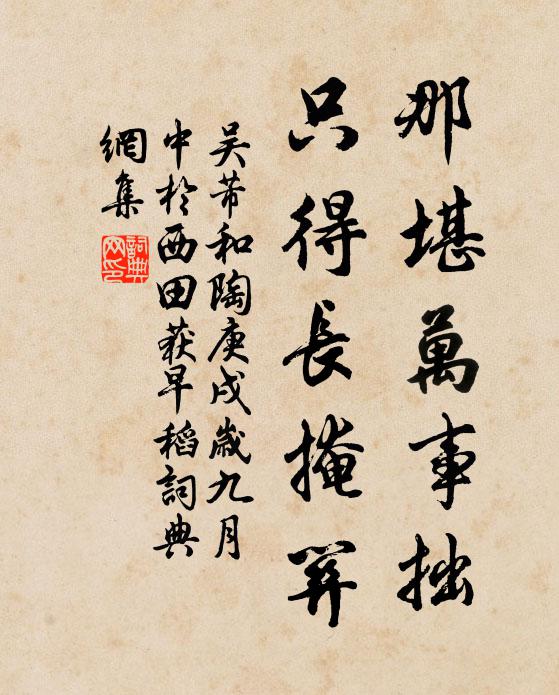 那堪萬事拙
只得長掩關
吴芾和陶庚戌歲九月
中於西田获早稻詞典
網集
詞典
网印